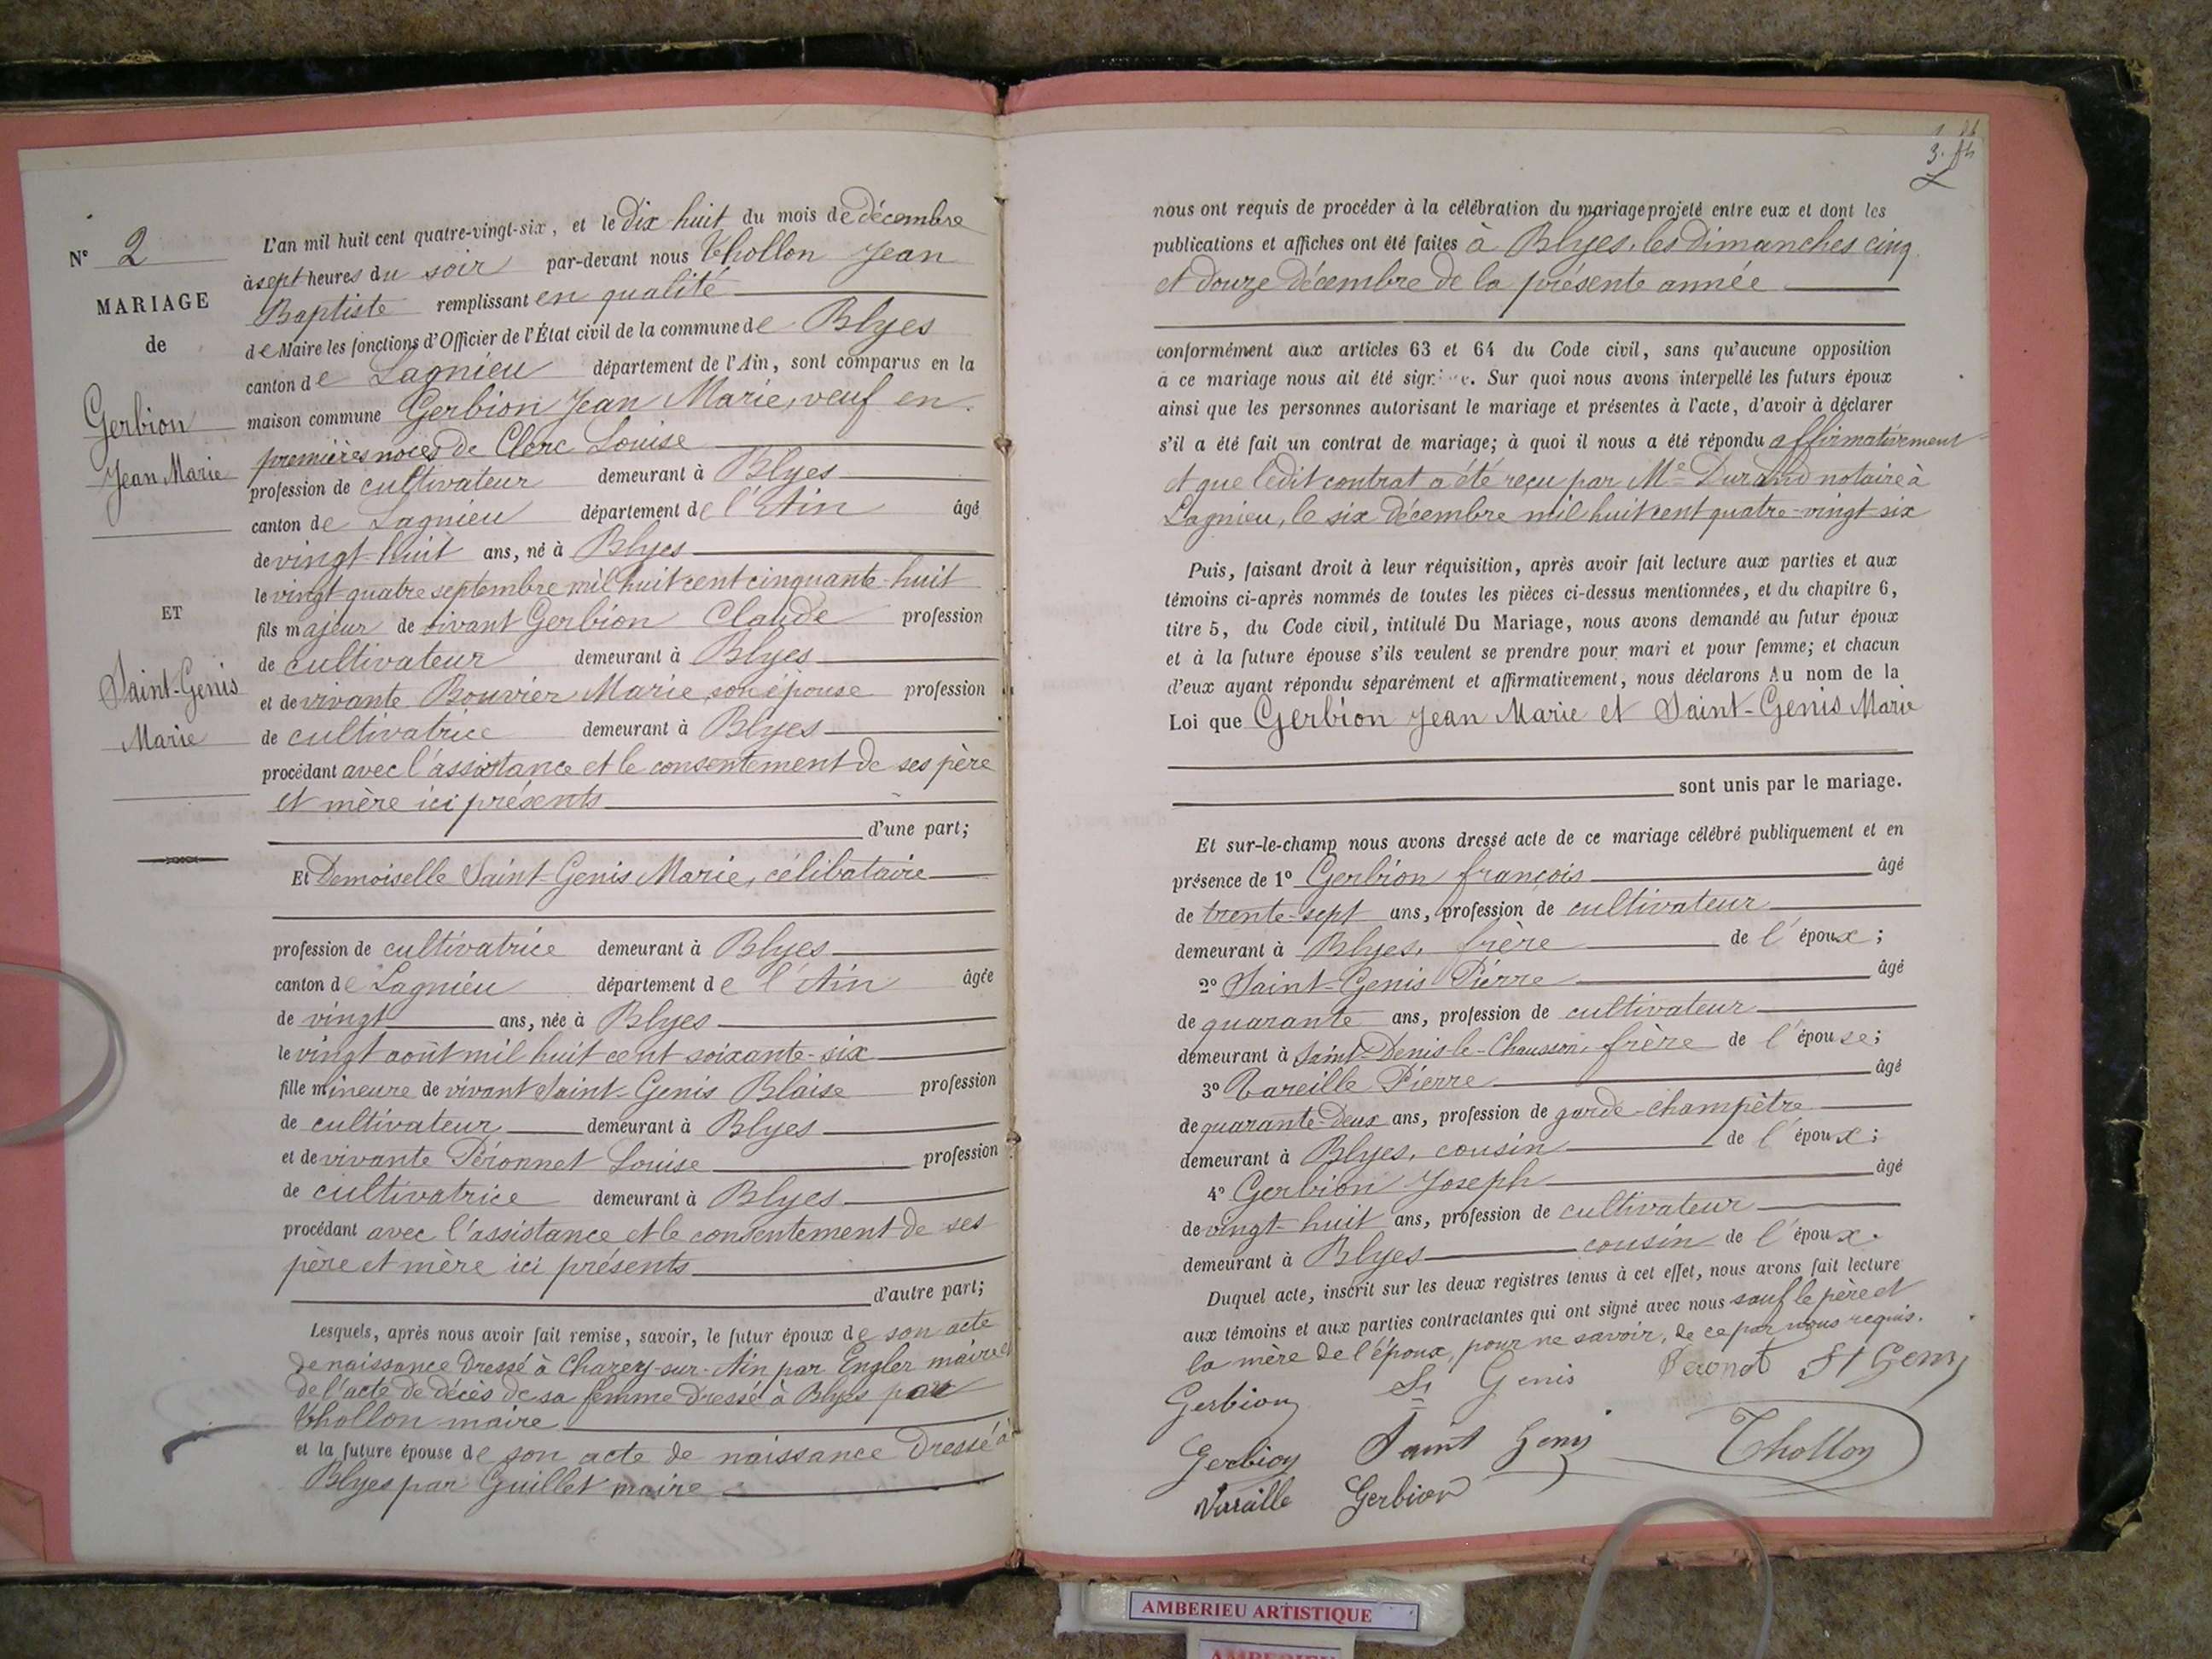 N° 2
MARIAGE
de
Gerbion
Jean Marie
ET
Saint-Genis
Marie
L'an mil huit cent quatre-vingt-six, et le dix huit du mois de décembre
à sept heures du soir par-devant nous Thollon Jean
Baptiste remplissant en qualité
de Maire les fonctions d'Officier de l'État civil de la commune de Blyes
canton de Lagnieu département de l'Ain, sont comparus en la
maison commune Gerbion Jean Marie, veuf en
premières noces de Clerc Louise
profession de cultivateur demeurant à Blyes
canton de Lagnieu département de l'Ain âgé
de vingt-huit ans, né à Blyes
le vingt-quatre septembre mil huit cent cinquante-huit
fils majeur de vivant Gerbion Claude profession
de cultivateur demeurant à Blyes
et de vivante Bouvier Marie, son épouse profession
de cultivatrice demeurant à Blyes
procédant avec l'assistance et le consentement de ses père
et mère ici présents
d'une part;
Et Demoiselle Saint-Genis Marie, célibataire
profession de cultivatrice demeurant à Blyes
canton de Lagnieu département de l'Ain âgée
de vingt ans, née à Blyes
le vingt août mil huit cent soixante-six
fille mineure de vivant Saint-Genis Blaise profession
de cultivateur demeurant à Blyes
et de vivante Péronnet Louise profession
de cultivatrice demeurant à Blyes
procédant avec l'assistance et le consentement de ses
père et mère ici présents
d'autre part;
Lesquels, après nous avoir fait remise, savoir, le futur époux de son acte
de naissance dressé à Chazey-sur-Ain par Engler maire et
de l'acte de décès de sa femme dressé à Blyes par
Thollon maire
et la future épouse de son acte de naissance dressé à
Blyes par Guillet maire
nous ont requis de procéder à la célébration du mariage projeté entre eux et dont les
publications et affiches ont été faites à Blyes, les dimanches cinq
et douze décembre de la présente année
conformément aux articles 63 et 64 du Code civil, sans qu'aucune opposition
à ce mariage nous ait été signifiée. Sur quoi nous avons interpellé les futurs époux
ainsi que les personnes autorisant le mariage et présentes à l'acte, d'avoir à déclarer
s'il a été fait un contrat de mariage; à quoi il nous a été répondu affirmativement
et que ledit contrat a été reçu par Me Durand notaire à
Lagnieu, le six décembre mil huit cent quatre-vingt-six
Puis, faisant droit à leur réquisition, après avoir fait lecture aux parties et aux
témoins ci-après nommés de toutes les pièces ci-dessus mentionnées, et du chapitre 6,
titre 5, du Code civil, intitulé Du Mariage, nous avons demandé au futur époux
et à la future épouse s'ils veulent se prendre pour mari et pour femme; et chacun
d'eux ayant répondu séparément et affirmativement, nous déclarons Au nom de la
Loi que Gerbion Jean Marie et Saint-Genis Marie
sont unis par le mariage.
Et sur-le-champ nous avons dressé acte de ce mariage célébré publiquement et en
présence de 1° Gerbion françois âgé
de trente-sept ans, profession de cultivateur
demeurant à Blyes, frère de l'époux;
2° Saint-Genis Pierre âgé
de quarante ans, profession de cultivateur
demeurant à Saint-Denis-le-Chausson, frère de l'épouse;
3° Vareille Pierre âgé
de quarante-deux ans, profession de garde-champêtre
demeurant à Blyes, cousin de l'époux;
4° Gerbion Joseph âgé
de vingt-huit ans, profession de cultivateur
demeurant à Blyes cousin de l'époux.
Duquel acte, inscrit sur les deux registres tenus à cet effet, nous avons fait lecture
aux témoins et aux parties contractantes qui ont signé avec nous sauf le père et
la mère de l'époux, pour ne savoir, de ce par nous requis.
Gerbion St Genis Peronet St Geny
Gerbion Saint Geny Thollon
Varaille Gerbion
AMBERIEU ARTISTIQUE
AMBERIEU